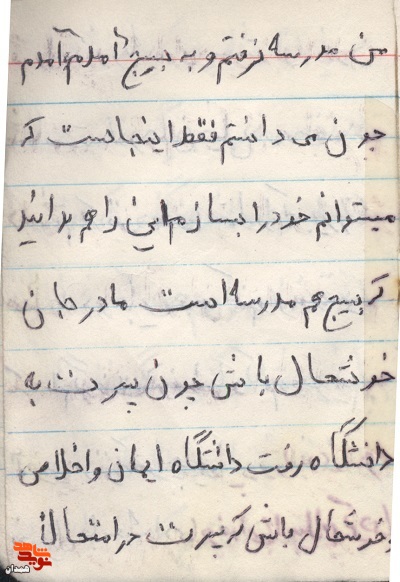 من مدرسه نرفتم و به بسیج آمدم آمدم
چون می دانستم فقط اینجاست که
میتوانم خود را بسازم این را هم بدانید
که بسیج هم مدرسه است مادر جان
خوشحال باش چون پسرت به
دانشگاه رفت دانشگاه ایمان و اخلاص
خوشحال باش که پسرت در امتحان
نوید شاهد
همدان